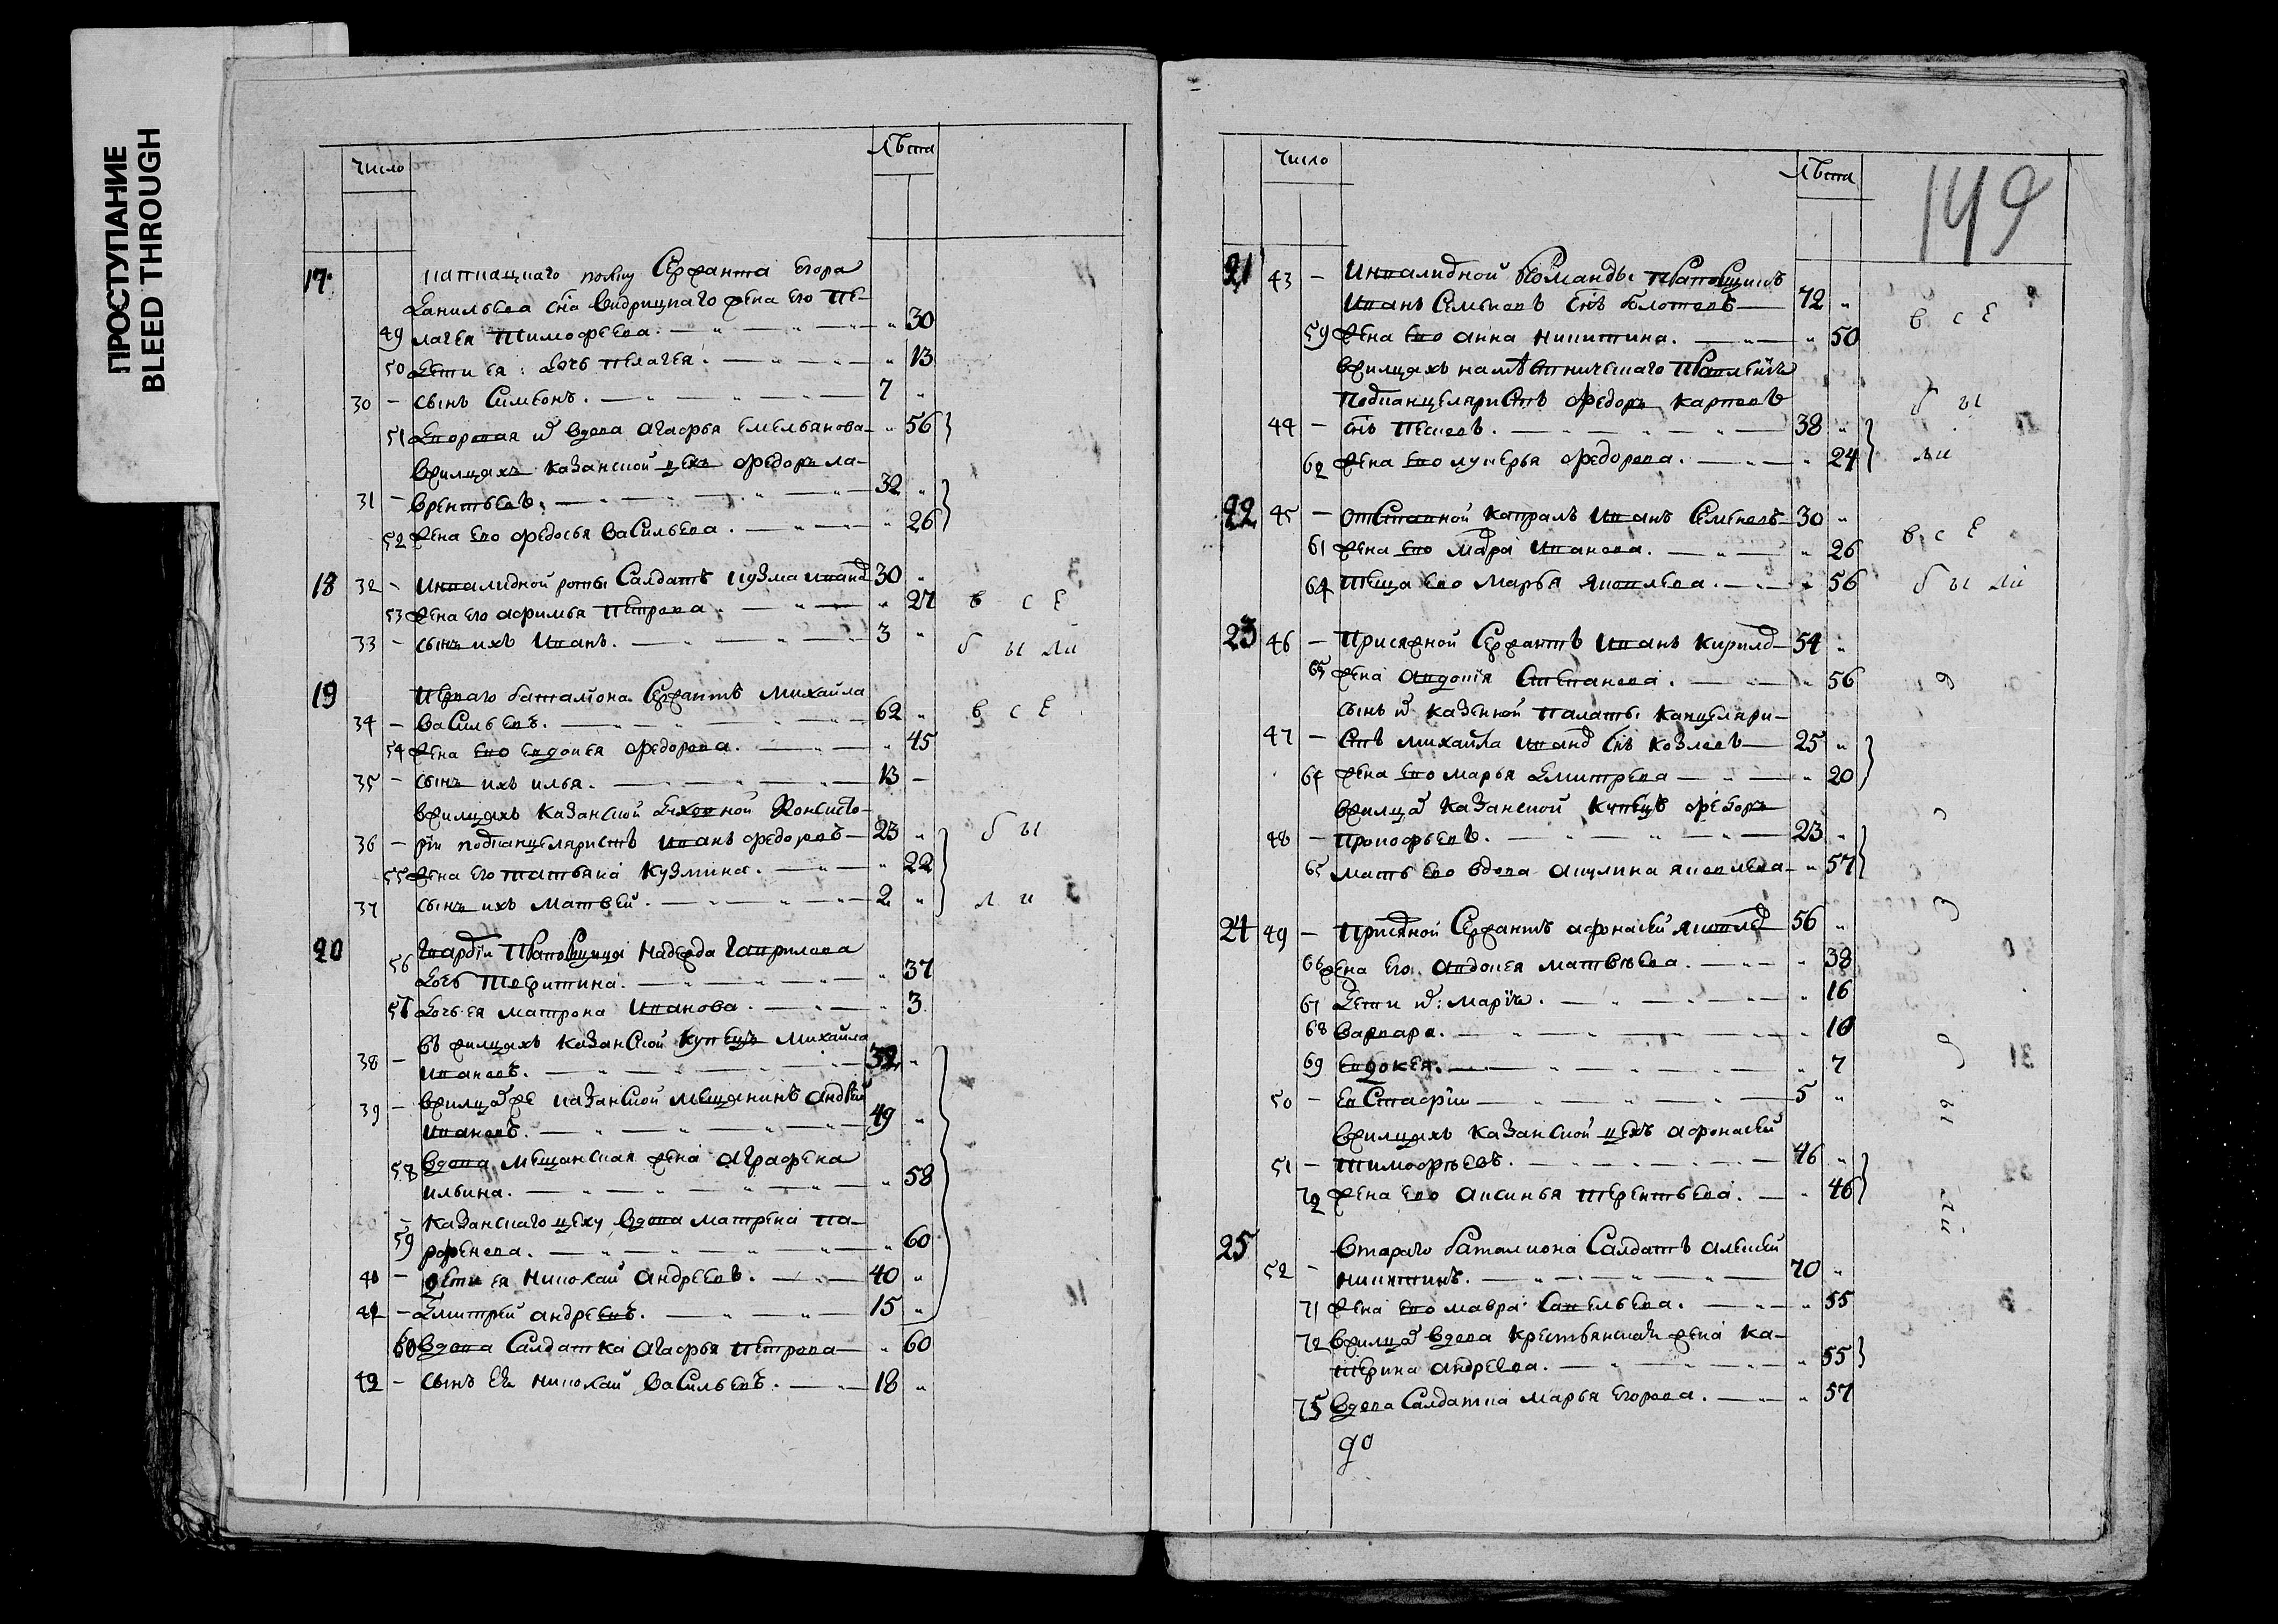 ПРОСТУПАНИЕ
BLEED THROUGH
число
лѣта
17
Сержанта Егора
Данильева сна жена его Пе-
49 лагея Тимофеева. 30
50 Дети ея: дочь Пелагея. 13
30 - сынъ Симеонъ. 7
51 вдова Агафья Емельянова 56
вжилцахъ казанской цехъ Федоръ Ла-
31 - врентьевъ. 32
52 жена ево Федосья Васильева. 26
18 32 - Инвалидной роты Салдатъ Кузма Иван 30
53 жена его Афимья Петрова 27 в с е
33 - сынъ ихъ Иванъ. 3 б ы ли
19 Перваго баталiона Сержантъ Михайла
34 - Васильевъ. 62 в с е
54 жена ево Евдокея Федорова. 45
35 - сынъ ихъ Илья. 13
вжилцахъ Казанской Духовной Консисто-
36 - рiи подканцеляристъ Иванъ Федоровъ 23 б ы
55 жена его Татьяна Кузмина. 22
37 сынъ ихъ Матвей. 2 л и
20 56 Гвардiи Прапорщица Надежда Гаврилова
дочь 37
57 Дочь ея Матрона Иванова. 3
38 - въ жилцахъ Казанской Купецъ Михайла
Ивановъ. 32
39 - вжилцахже казанской мещанинъ Андрей
Ивановъ. 49
58 вдова мещанская жена Аграфена
Ильина. 58
Казанскаго цеху вдова Матрена Па-
59 рфенова. 60
40 - дети ея Николай Андреевъ. 40
41 - Дмитрей Андреевъ. 15
60 вдова Салдатка Агафья Петрова 60
42 - сынъ ея Николай Васильевъ. 18
число
лѣта
149
21 43 - Инвалидной Команды Прапорщикъ
Иванъ Семеновъ снъ 72 в с е
59 жена ево Анна Никитина. 50
вжилцахъ намѣстническаго Правленiя
Подканцеляристъ Федоръ Карповъ б ы
44 - снъ 38
62 жена ево Лукерья Федорова. 24 ли
22 45 - отставной Капралъ Иванъ Семеновъ 30
61 жена ево Ивановна. 26 в с е
64 теща ево Марья Яковлева. 56 б ы ли
23 46 - Присяжной Сержантъ Иванъ Кирилов 54
65 жена Авдотiя Степанова. 56
сынъ ихъ казенной палаты канцеляри-
47 - стъ Михайла Иванов снъ Козловъ 25
64 жена ево Марья Дмитрева 20
вжилцах Казанской Купецъ Федоръ
48 - Прокофьевъ. 23
65 мать ево вдова Акулина Яковлева 57
24 49 - Присяжной Сержантъ Афонасей Яковлев 56
66 жена его Авдокея Матвѣева. 38
67 Дети их: Марiя. 16
68 Варвара. 10
69 Евдокея. 7
50 - Евстафiи 5
вжилцахъ Казанской цехъ Афонасей
51 - Тимофѣевъ. 46
72 жена ево Аксинья Терентьева. 46
25 втораго баталиона Салдатъ Алексей
52 - Никитинъ. 70
71 жена ево Мавра Савельева. 55
72 вжилцах вдова крестьянская жена Ка-
терина Андреева. 55
75 вдова Салдатка Марья Егорова. 57